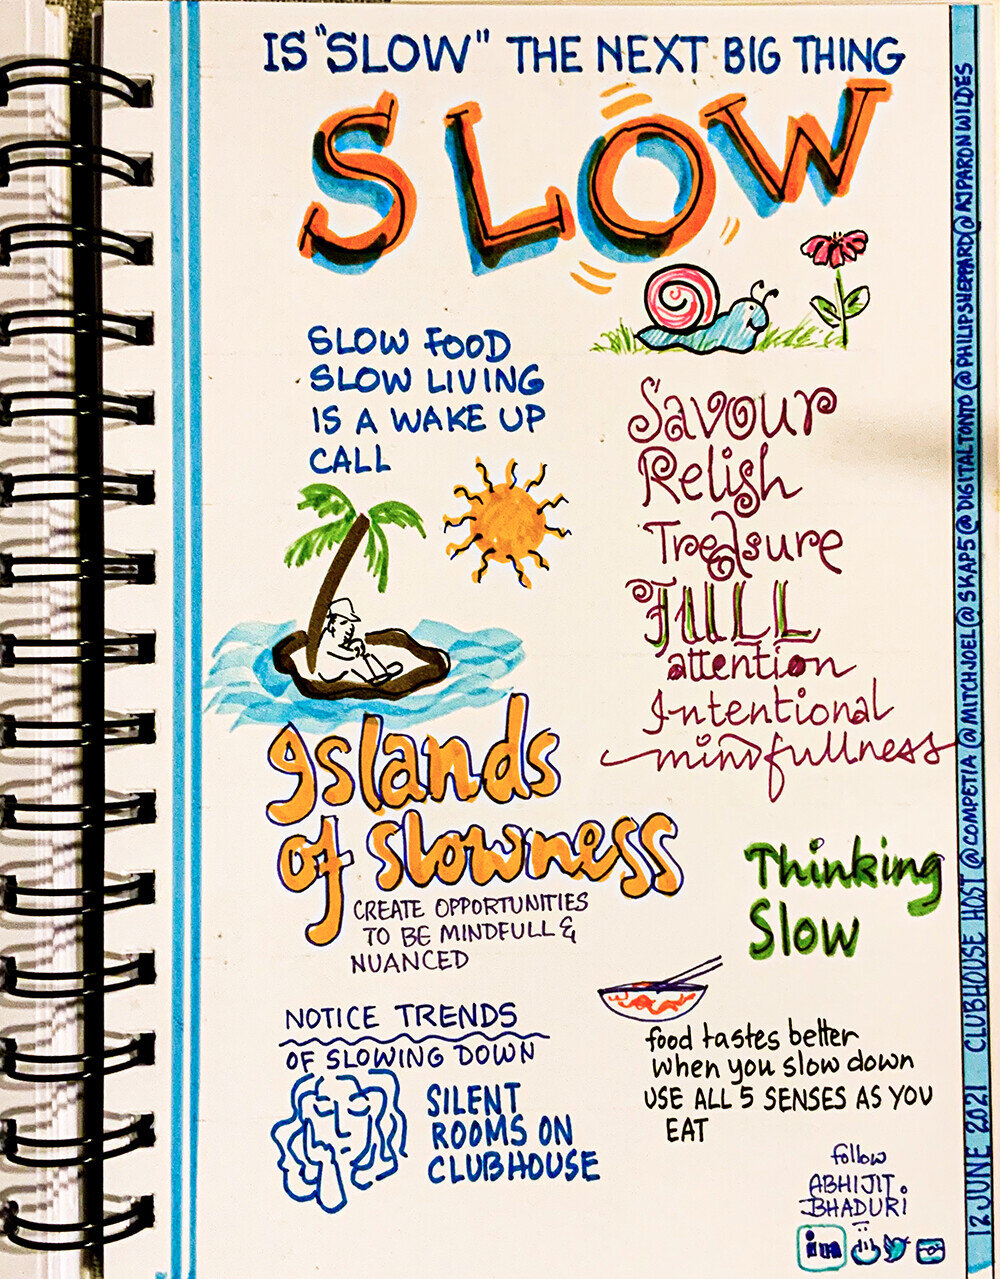 IS "SLOW" THE NEXT BIG THING
SLOW
SLOW FOOD
SLOW LIVING
IS A WAKE UP
CALL
Savour
Relish
Treasure
FULL
attention
Intentional
mindfullness
Islands
of slowness
CREATE OPPORTUNITIES
TO BE MINDFULL &
NUANCED
Thinking
Slow
food tastes better
when you slow down
USE ALL 5 SENSES AS YOU
EAT
NOTICE TRENDS
OF SLOWING DOWN
SILENT
ROOMS ON
CLUBHOUSE
follow
ABHIJIT
BHADURI
in
12 JUNE 2021 CLUBHOUSE HOST @COMPETIA @MITCHJOEL @SKAP5 @DIGITALTONTO @PHILIPSHEPPARD @AJPARONWILDES